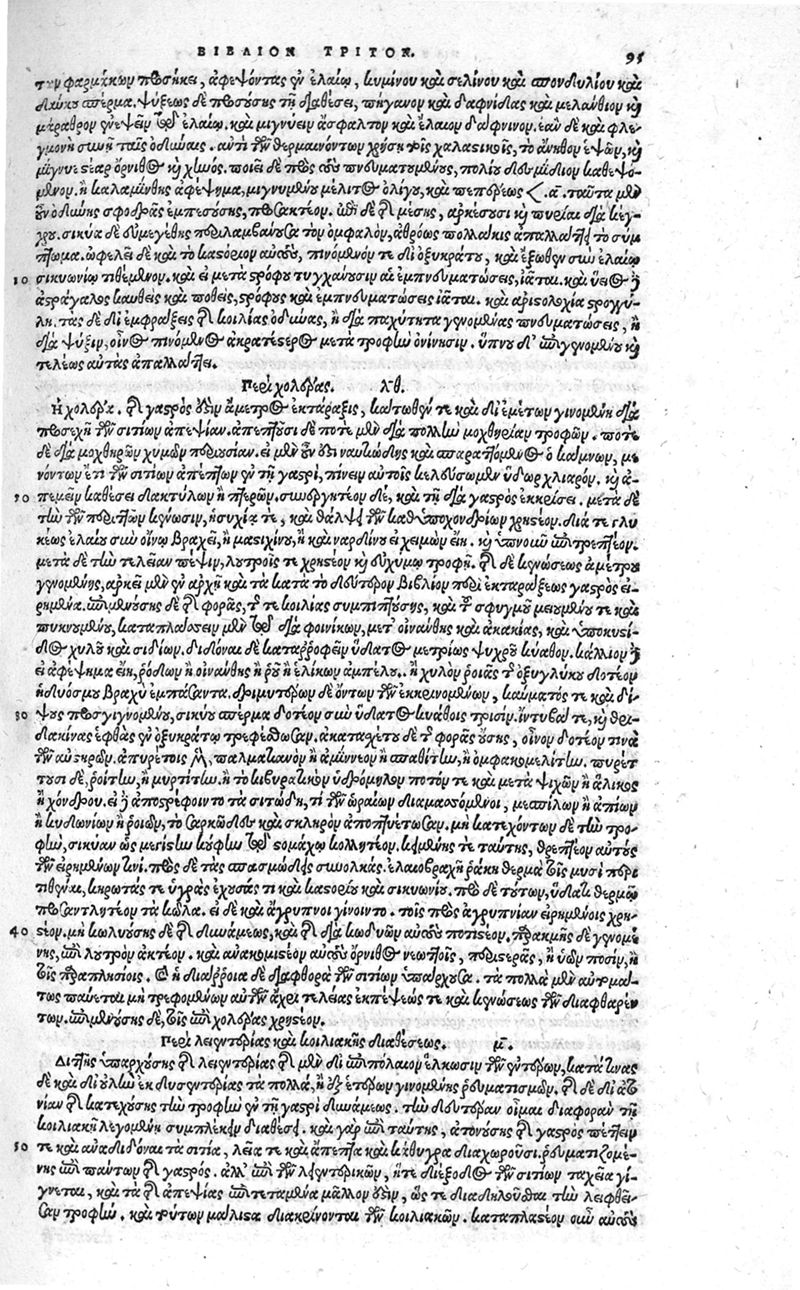 ΒΙΒΛΙΟΝ ΤΡΙΤΟΝ. 95
τῶν φαρμάκων προσήκει, ἀφέψοντας ἐν ἐλαίῳ, κυμίνου καὶ σελίνου καὶ σπονδυλίου καὶ
δαύκου σπέρμα. ψύξεως δὲ προσούσης τῇ διαθέσει, πήγανον καὶ δαφνίδας καὶ μελάνθιον καὶ
μάραθρον ἐνεψεῖν τῷ ἐλαίῳ. καὶ μιγνύειν ἄσφαλτον καὶ ἔλαιον δάφνινον. ἐὰν δὲ καὶ φλε
γμονὴ συνῇ ταῖς ὀδύναις. ἀντὶ τῶν θερμαινόντων χρῆσθαι τοῖς χαλαστικοῖς, τὸ ἄνηθον ἑψῶν, καὶ
μίγνυε στέαρ ὄρνιθος καὶ χηνός. ποιεῖ δὲ πρὸς τοὺς πνευματουμένους, πολίου δυσμίδιον καθεψό-
μενον. ἢ καλαμίνθης ἀφέψημα, μιγνυμένου μέλιτος ὀλίγου, καὶ πεπέρεως < α. ταῦτα μὲν
οὖν ὀδύνης σφοδρᾶς ἐμπεσούσης, πρακτέον. ἐπὶ δὲ τῆς μέσης, ἀρκέσουσι καὶ πυρίαι διὰ κέγ-
χρου. σικύα δὲ εὐμεγέθης περιλαμβάνουσα τὸν ὀμφαλὸν, ἀθρόως πολλάκις ἀπαλλάττει τὸ σύμ
πτωμα. ὠφελεῖ δὲ καὶ τὸ καστόριον αὐτοὺς, πινόμενόν τε δι' ὀξυκράτου, καὶ ἔξωθεν σὺν ἐλαίῳ
10 σικυωνίῳ τιθέμενον. καὶ εἰ μετὰ στρόφου τυγχάνουσιν αἱ ἐμπνευματώσεις, ἰᾶται. καὶ ὑὸς δὲ
ἀστράγαλος καυθεὶς καὶ ποθεὶς, στρόφους καὶ ἐμπνευματώσεις ἰᾶται. καὶ ἀριστολοχία στρογγύ-
λη. τὰς δὲ δι' ἐμφράξεις τῆς κοιλίας ὀδύνας, ἢ διὰ παχύτητα γενομένας πνευματώσεις, ἢ
διὰ ψύξιν, οἶνος πινόμενος ἀκρατέστερος μετὰ τροφὴν ὀνίνησιν. ὕπνου δ' ἐπιγενομένου καὶ
τελέως αὐτὰς ἀπαλλάττει.
Περὶ χολέρας. λθ.
Ἡ χολέρα. τῆς γαστρός ἐστιν ἄμετρος ἐκτάραξις, κάτωθέν τε καὶ δι' ἐμέτων γινομένη διὰ
προσεχῆ τῶν σιτίων ἀπεψίαν. ἀπεπτοῦσι δέ ποτε μὲν διὰ πολλὴν μοχθηρίαν τροφῶν. ποτὲ
δὲ διὰ μοχθηρῶν χυμῶν περιουσίαν. εἰ μὲν οὖν ἔτι ναυτιώδης καὶ σπαραττόμενος ὁ κάμνων, με
νόντων ἔτι τῶν σιτίων ἀπέπτων ἐν τῇ γαστρὶ, πίνειν αὐτοῖς κελεύσωμεν ὕδωρ χλιαρόν. καὶ ἀ-
20 πεμεῖν καθέσει δακτύλων ἢ πτερῶν. συνεργητέον δὲ, καὶ τῇ διὰ γαστρὸς ἐκκρίσει. μετὰ δὲ
τὴν τῶν περιττῶν κένωσιν, ἡσυχίᾳ τε, καὶ θάλψει τῶν καθ' ὑποχονδρίων χρηστέον. διά τε γλυ
κέως ἐλαίου σὺν οἴνῳ βραχεῖ, ἢ μαστιχίνου, ἢ καὶ ναρδίνου εἰ χειμὼν εἴη. καὶ ὑπνοῦν ἐπιτρεπτέον.
μετὰ δὲ τὴν τελείαν πέψιν, λουτροῖς τε χρηστέον καὶ εὐχύμῳ τροφῇ. τῆς δὲ κενώσεως ἀμέτρου
γενομένης, ἀρκεῖ μὲν ἐν ἀρχῇ καὶ τὰ κατὰ τὸ δεύτερον βιβλίον περὶ ἐκταράξεως γαστρὸς εἰ-
ρημένα. ἐπιμενούσης δὲ τῆς φορᾶς, τῆς τε κοιλίας συμπιπτούσης, καὶ τοῦ σφυγμοῦ μειουμένου τε καὶ
πυκνουμένου, καταπλάσσειν μὲν τῷ διὰ φοινίκων, μετ' οἰνάνθης καὶ ἀκακίας, καὶ ὑποκυστί-
δος χυλοῦ καὶ σιδίων, διδόναι δὲ καταρροφεῖν ὕδατος μετρίως ψυχροῦ κύαθον. κάλλιον δὲ
εἰ ἀφέψημα εἴη, ῥόδων ἢ οἰνάνθης ἢ ῥοῦ ἢ ἑλίκων ἀμπέλου. ἢ χυλὸν ῥοιᾶς τῆς ὀξυγλύκου δοτέον
ἡδυόσμου βραχὺ ἐμπάσαντα. δριμυτέρων δὲ ὄντων τῶν ἐκκρινομένων, καύματός τε καὶ δί-
30 ψους προσγιγνομένου, σικύου σπέρμα δοτέον σὺν ὕδατος κυάθοις τρισίν. ἴντυβά τε, καὶ θρι-
δακίνας ἑφθὰς ἐν ὀξυκράτῳ τρεφέσθωσαν. ἀκατασχέτου δὲ τῆς φορᾶς οὔσης, οἶνον δοτέον τινὰ
τῶν αὐστηρῶν. ἀπυρέτοις μὲν, παλματιανὸν ἢ ἀμίννεον ἢ σπαθίτην, ἢ ὀμφακομελίτην. πυρέτ
τουσι δὲ, ῥοΐτην, ἢ μυρτίτην. ἢ τὸ κιβυρατικὸν ὑδρόμηλον ποτόν τε καὶ μετὰ ψιχῶν ἢ ἄλικος
ἢ χόνδρου. εἰ δὲ ἀποστρέφοιντο τὰ σιτώδη, τὶ τῶν ὡραίων διαμασσόμενοι, μεσπίλων ἢ ἀπίων
ἢ κυδωνίων ἢ ῥοιῶν, τὸ σαρκῶδες καὶ σκληρὸν ἀποπτυέτωσαν. μὴ κατεχόντων δὲ τὴν τρο-
φὴν, σικύαν ὡς μεγίστην κούφην τῷ στομάχῳ κολλητέον. κειμένης τε ταύτης, θρεπτέον αὐτοὺς
τῶν εἰρημένων τινί. πρὸς δὲ τὰς σπασμώδεις συνολκὰς. ἐλαιοβραχῆ ῥάκη θερμὰ τοῖς μυσὶ περι
τιθέναι, κηρωτάς τε ὑγρὰς ἐχούσας τι καὶ καστορίου καὶ σικυωνίου. πρὸ δὲ τούτων, ὕδατι θερμῷ
προαντλητέον τὰ κῶλα. εἰ δὲ καὶ ἄγρυπνοι γίνοιντο. τοῖς πρὸς ἀγρυπνίαν εἰρημένοις χρη-
40 στέον. μὴ κωλυούσης δὲ τῆς δυνάμεως, καὶ τῆς διὰ κωδυῶν αὐτοὺς ποτιστέον. παρακμῆς δὲ γενομέ
νης, ἐπὶ λουτρὸν ἀκτέον. καὶ ἀνακομιστέον αὐτοὺς ὄρνιθος νεοττοῖς, περιστερᾶς, ἢ ὑῶν ποσὶν, ἢ
τοῖς παραπλησίοις. ἔστι ἡ διάρροια δὲ διαφθορὰ τῶν σιτίων ὑπάρχουσα. τὰ πολλὰ μὲν αὐτομά-
τως παύεται μὴ τρεφομένων αὐτῶν ἄχρι τελείας ἐκπέψεώς τε καὶ κενώσεως τῶν διαφθαρέν
των. ἐπιμενούσης δὲ, τοῖς ἐπὶ χολέρας χρηστέον.
Περὶ λειεντερίας καὶ κοιλιακῆς διαθέσεως. μ.
Διττῆς ὑπαρχούσης τῆς λειεντερίας τῆς μὲν δι' ἐπιπόλαιον ἕλκωσιν τῶν ἐντέρων, κατά τινας
δὲ καὶ δι' οὐλὴν ἐκ δυσεντερίας τὰ πολλὰ, ἢ ἐξ ἑτέρων γινομένης ῥευματισμῶν. τῆς δὲ δι' ἀτο
νίαν τῆς κατεχούσης τὴν τροφὴν ἐν τῇ γαστρὶ δυνάμεως. τὴν δευτέραν οἶμαι διαφορὰν τῇ
κοιλιακῇ λεγομένῃ συμπλέκειν διαθέσει. καὶ γὰρ ἐπὶ ταύτης, ἀτονούσης τῆς γαστρὸς πέττειν
50 τε καὶ ἀναδιδόναι τὰ σιτία, λεῖά τε καὶ ἄπεπτα καὶ κάθυγρα διαχωροῦσι. ῥευματιζομέ-
νης ἐπὶ πάντων τῆς γαστρός. ἀλλ' ἐπὶ τῶν λειεντερικῶν, ἥτε διέξοδος τῶν σιτίων ταχεῖα γί-
γνεται, καὶ τὰ τῆς ἀπεψίας ἐπιτεταμένα μᾶλλόν ἐστιν, ὥς τε διαδηλοῦσθαι τὴν ληφθεῖ-
σαν τροφήν. καὶ τούτῳ μάλιστα διακρίνονται τῶν κοιλιακῶν. καταπλαστέον οὖν αὐτοὺς